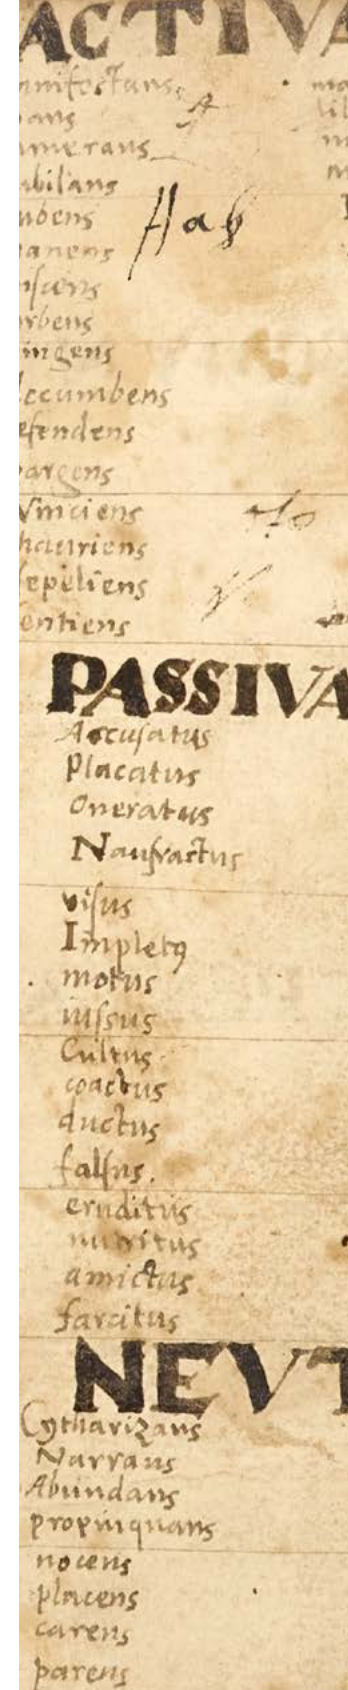 ACTIVA
nnifestans
ans
merans
bilans
Hab
ubens
anens
iscens
rbens
ingens
ccumbens
efendens
pargens
Vinciens
hauriens
epeliens
entiens
PASSIVA
Accusatus
Placatus
Oneratus
Naufractus
visus
Impletꝯ
motus
iussus
Cultus
coactus
ductus
falsus.
eruditus
nutritus
amictus
farcitus
NEVT
Cytharizans
Narrans
Abundans
propinquans
nocens
placens
carens
parens